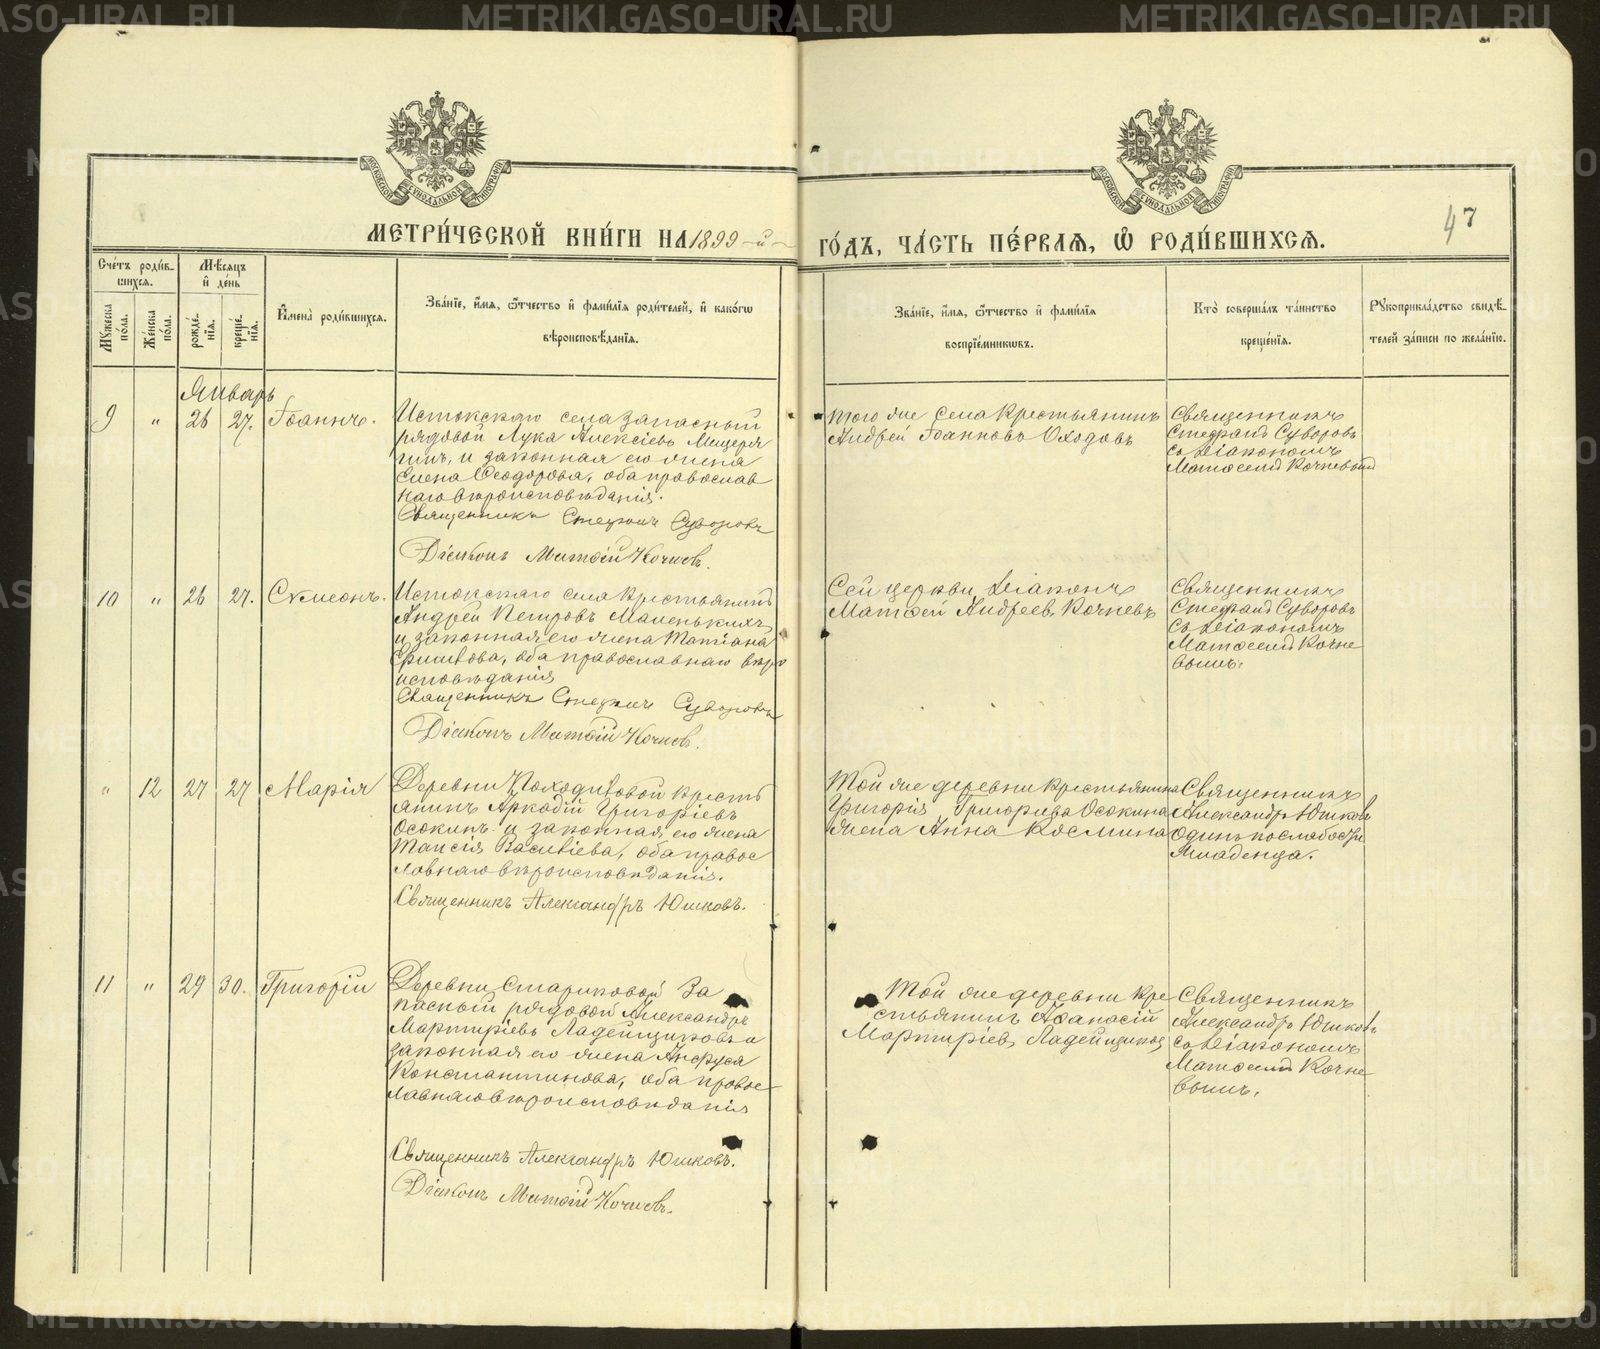 METRIKI.GASO-URAL.RU
МОСКОВСКОЙ СѴНОДАЛЬНОЙ ТИПОГРАФІИ
МОСКОВСКОЙ СѴНОДАЛЬНОЙ ТИПОГРАФІИ
47
МЕТРИ́ЧЕСКОЙ КНИ́ГИ НА 1899-й
ГО́ДЪ, ЧА́СТЬ ПЕ́РВАЯ, Ѽ РОДИ́ВШИХСЯ.
Сче́тъ роди́в-
шихся.
Мѣ́сяцъ
и҆ де́нь
Мꙋ́жеска
по́ла.
Же́нска
по́ла.
рожде́-
нїѧ.
креще́-
нїѧ.
И҆мена̀ роди́вшихся.
Зва́нїе, и҆́мѧ, ѻ҆́тчество и҆ фами́лїѧ роди́телей, и҆ како́гѡ
вѣроисповѣ́данїѧ.
Зва́нїе, и҆́мѧ, ѻ҆́тчество и҆ фами́лїѧ
воспрїе́мникѡвъ.
Кто̀ соверша́лъ та́инство
креще́нїѧ.
Рꙋкоприкла́дство свидѣ́-
телей за́писи по жела́нїю.
Январь
9 " 26 27. Іоаннъ.
Истокскаго села запасный
рядовой Лука Алексіевъ Мещеря
гинъ, и законная его жена
Елена Ѳеодорова, оба православ
наго вѣроисповѣданія.
Священникъ Стефанъ Суворовъ
Діаконъ Матѳій Кочневъ.
того же села крестьянинъ
Андрей Іоанновъ Оходовъ
Священникъ
Стефанъ Суворовъ
съ Діакономъ
Матѳеемъ Кочневымъ
10 " 26 27. Сѵмеонъ.
Истокскаго села крестьянинъ
Андрей Петровъ Маленькихъ
и законная его жена Татіана
Ефимова, оба православнаго вѣро
исповѣданія
Священникъ Стефанъ Суворовъ
Діаконъ Матѳій Кочневъ.
Сей церкви Діаконъ
Матѳей Андреевъ Кочневъ
Священникъ
Стефанъ Суворовъ
съ Діакономъ
Матѳеемъ Кочне
вымъ.
" 12 27 27 Марія
Деревни Походиловой кресть
янинъ Аркадій Григоріевъ
Осокинъ и законная его жена
Таисія Василіева, оба правос
лавнаго вѣроисповѣданія.
Священникъ Александръ Юшковъ.
Той же деревни крестьянина
Григорія Григорьева Осокина
жена Анна Космина
Священникъ
Александръ Юшковъ
Одинъ по слабости
младенца.
11 " 29 30. Григорій
Деревни Стариковой За
пасный рядовой Александръ
Мартиріевъ Ладейщиковъ и
законная его жена Анфуса
Константинова, оба правос
лавнаго вѣроисповѣданія
Священникъ Александръ Юшковъ.
Діаконъ Матѳій Кочневъ.
Той же деревни кре
стьянинъ Аѳанасій
Мартиріевъ Ладейщиковъ
Священникъ
Александръ Юшковъ
съ Діакономъ
Матѳеемъ Кочне
вымъ.